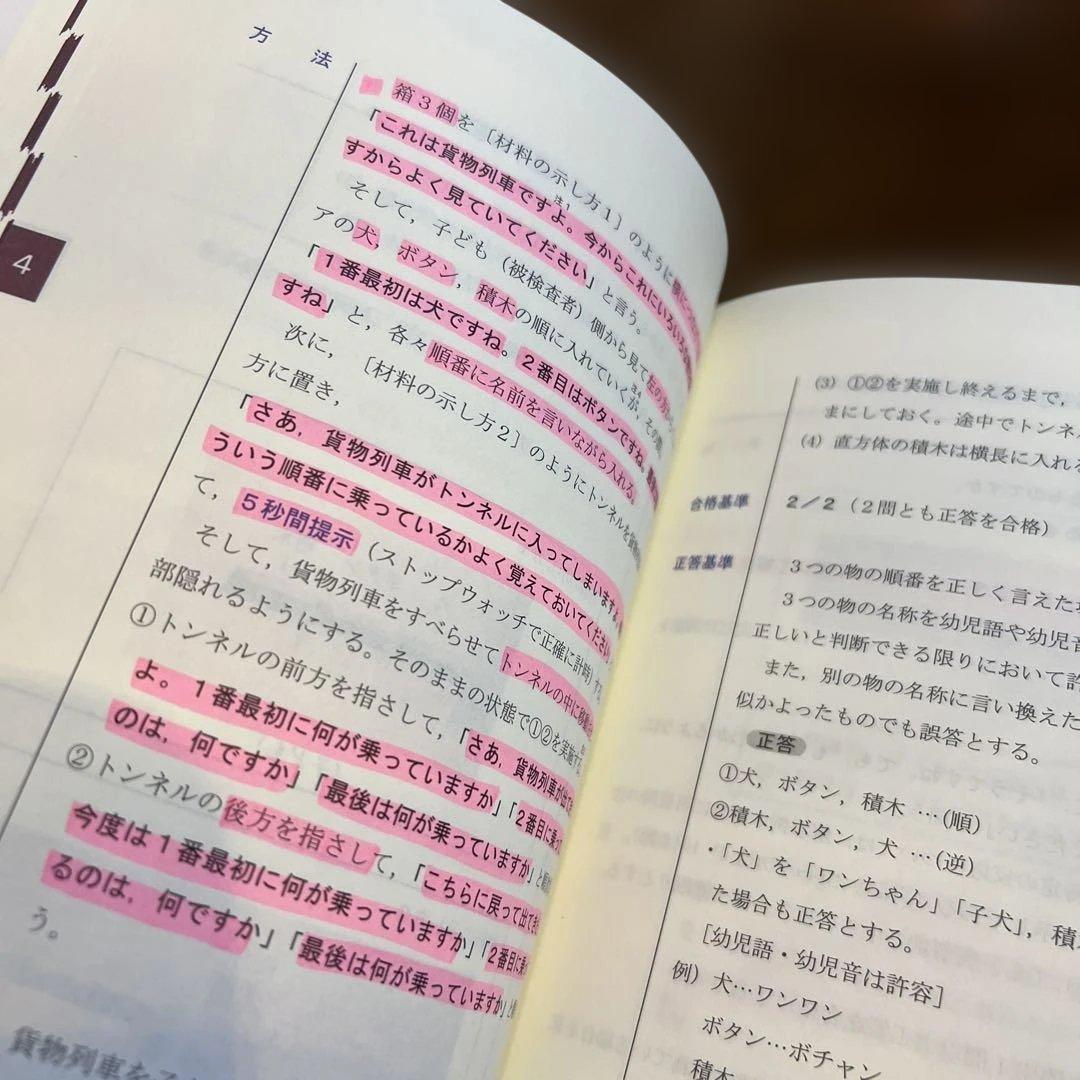 4
方　法
箱3個を〔材料の示し方1〕のように
「これは貨物列車ですよ。今からこれにいろいろ
注1
すからよく見ていてください」と言う。
そして，子ども（被検査者）側から見て左の
アの犬，ボタン，積木の順に入れていくが，その際，
注4
「1番最初は犬ですね。2番目はボタンですね。
すね」と，各々順番に名前を言いながら入れる。
次に，〔材料の示し方2〕のようにトンネルを
方に置き，
「さあ，貨物列車がトンネルに入ってしまいますよ。
ういう順番に乗っているかよく覚えておいてください」
て，5秒間提示（ストップウォッチで正確に計時）する。
そして，貨物列車をすべらせてトンネルの中に
部隠れるようにする。そのままの状態で①②を実施する。
①トンネルの前方を指さして，「さあ，貨物列車が出てき
よ。1番最初に何が乗っていますか」「2番目に乗って
のは，何ですか」「最後は何が乗っていますか」と
②トンネルの後方を指さして，「こちらに戻って出てき
今度は1番最初に何が乗っていますか」「2番目に乗っ
るのは，何ですか」「最後は何が乗っていますか」と
う。
貨物列車を
(3) ①②を実施し終えるまで，
まにしておく。途中でトンネ
(4) 直方体の積木は横長に入れる
合格基準　2／2（2問とも正答を合格）
正答基準　3つの物の順番を正しく言えた
3つの物の名称を幼児語や幼児音
正しいと判断できる限りにおいて許
また，別の物の名称に言い換えた
似かよったものでも誤答とする。
正答
①犬，ボタン，積木 …(順)
②積木，ボタン，犬 …(逆)
・「犬」を「ワンちゃん」「子犬」，積
た場合も正答とする。
[幼児語・幼児音は許容]
例）犬…ワンワン
ボタン…ボチャン
積木